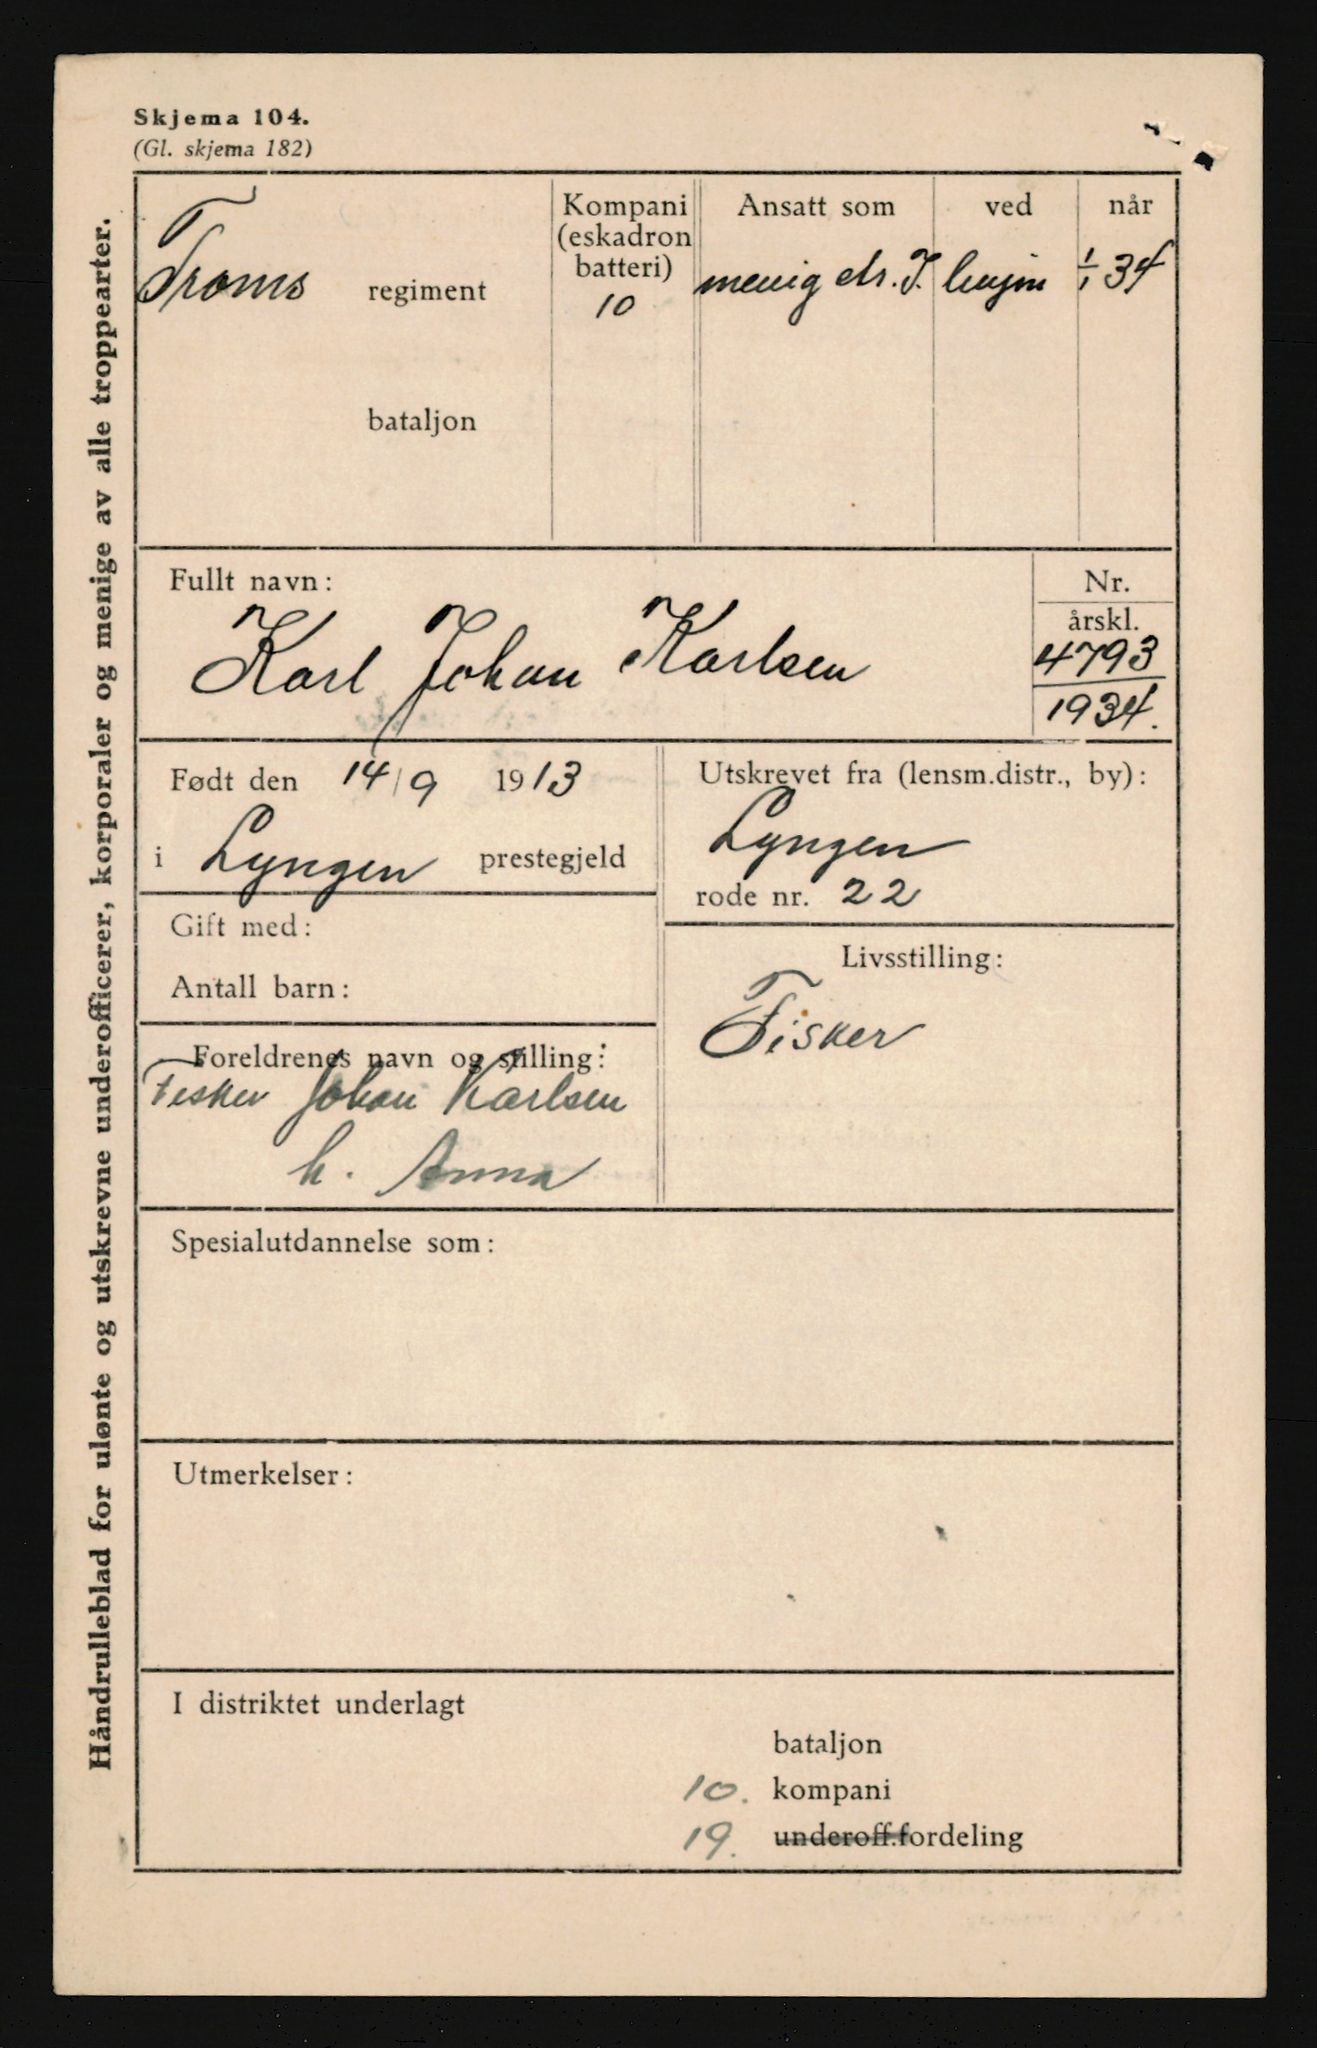 Skjema 104.
(Gl. skjema 182)
Håndrulleblad for ulønte og utskrevne underofficerer, korporaler og menige av alle troppearter.
Troms regiment
bataljon
Kompani
(eskadron
batteri)
10
Ansatt som
menig str. I.
ved
linjen
når
1/1 34
Fullt navn:
Karl Johan Karlsen
Nr.
årskl.
4793
1934.
Født den 14/9 1913
i Lyngen prestegjeld
Utskrevet fra (lensm.distr., by):
Lyngen
rode nr. 22
Gift med:
Antall barn:
Livsstilling:
Fisker
Foreldrenes navn og stilling:
Fisker Johan Karlsen
h. Anna
Spesialutdannelse som:
Utmerkelser:
I distriktet underlagt
bataljon
10. kompani
19. underoff.fordeling